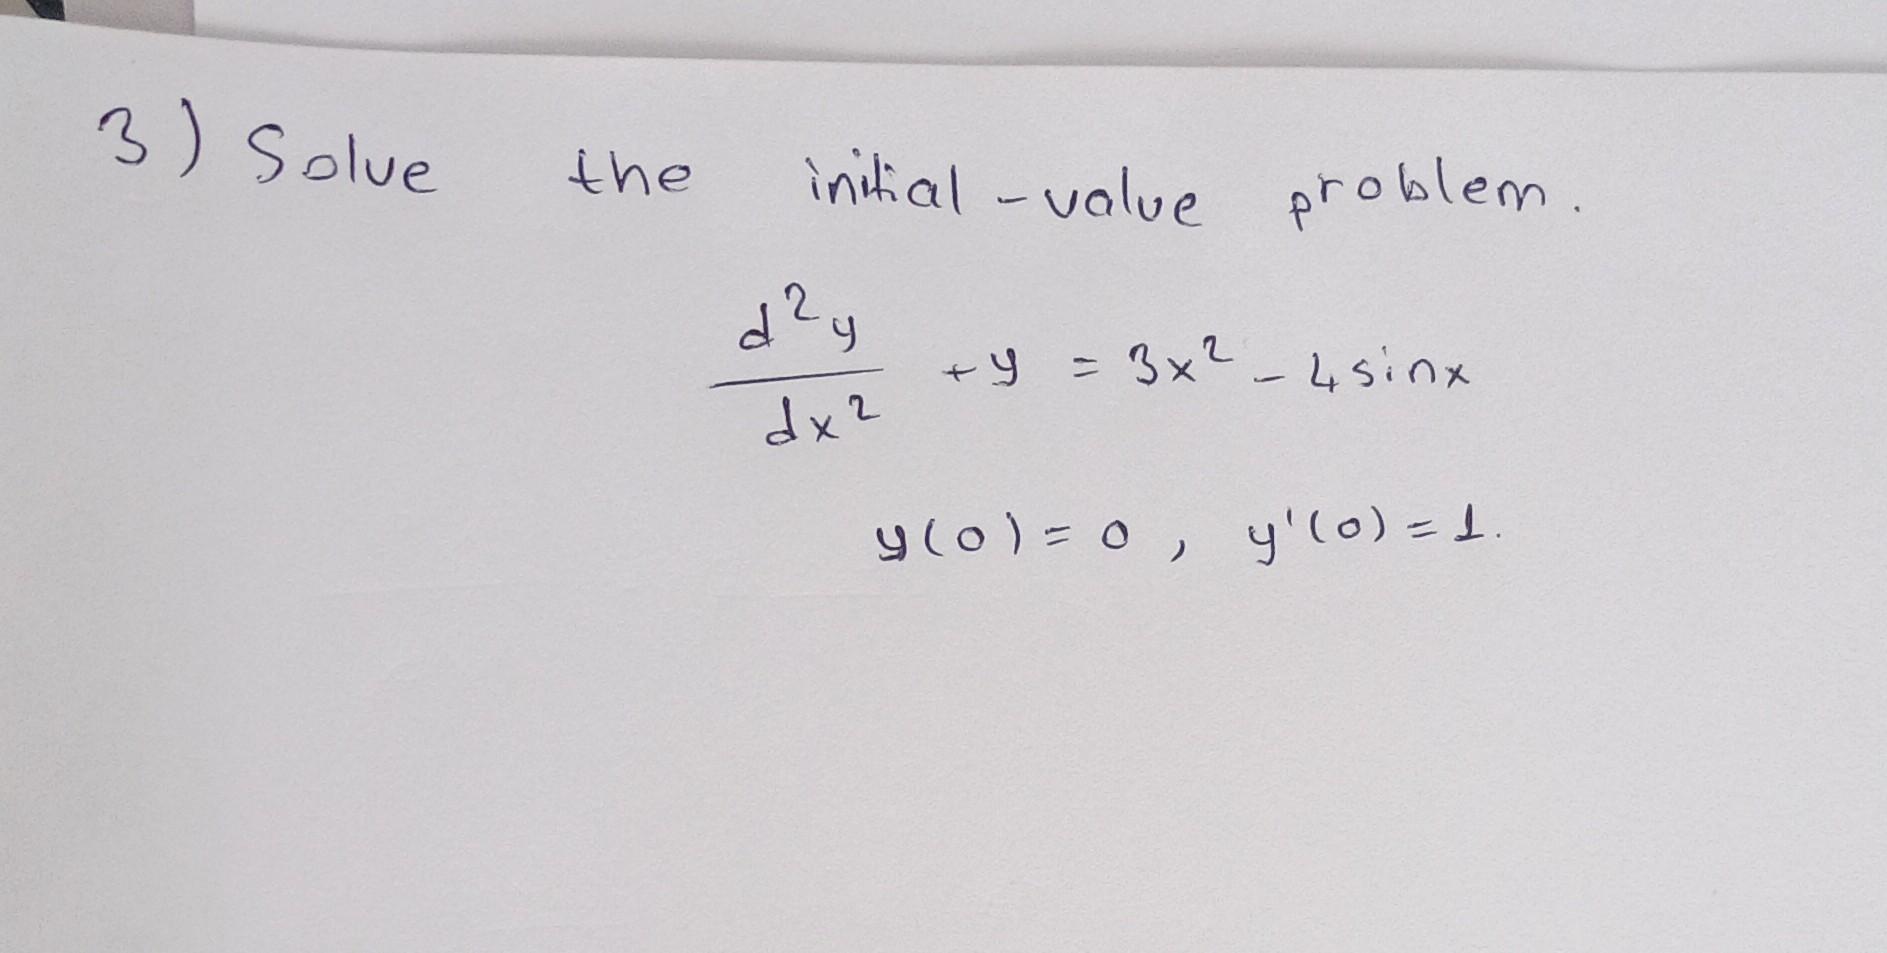 3) Solve the initial-value problem.
d²y/dx² + y = 3x² - 4 sinx
y(0) = 0, y'(0) = 1.